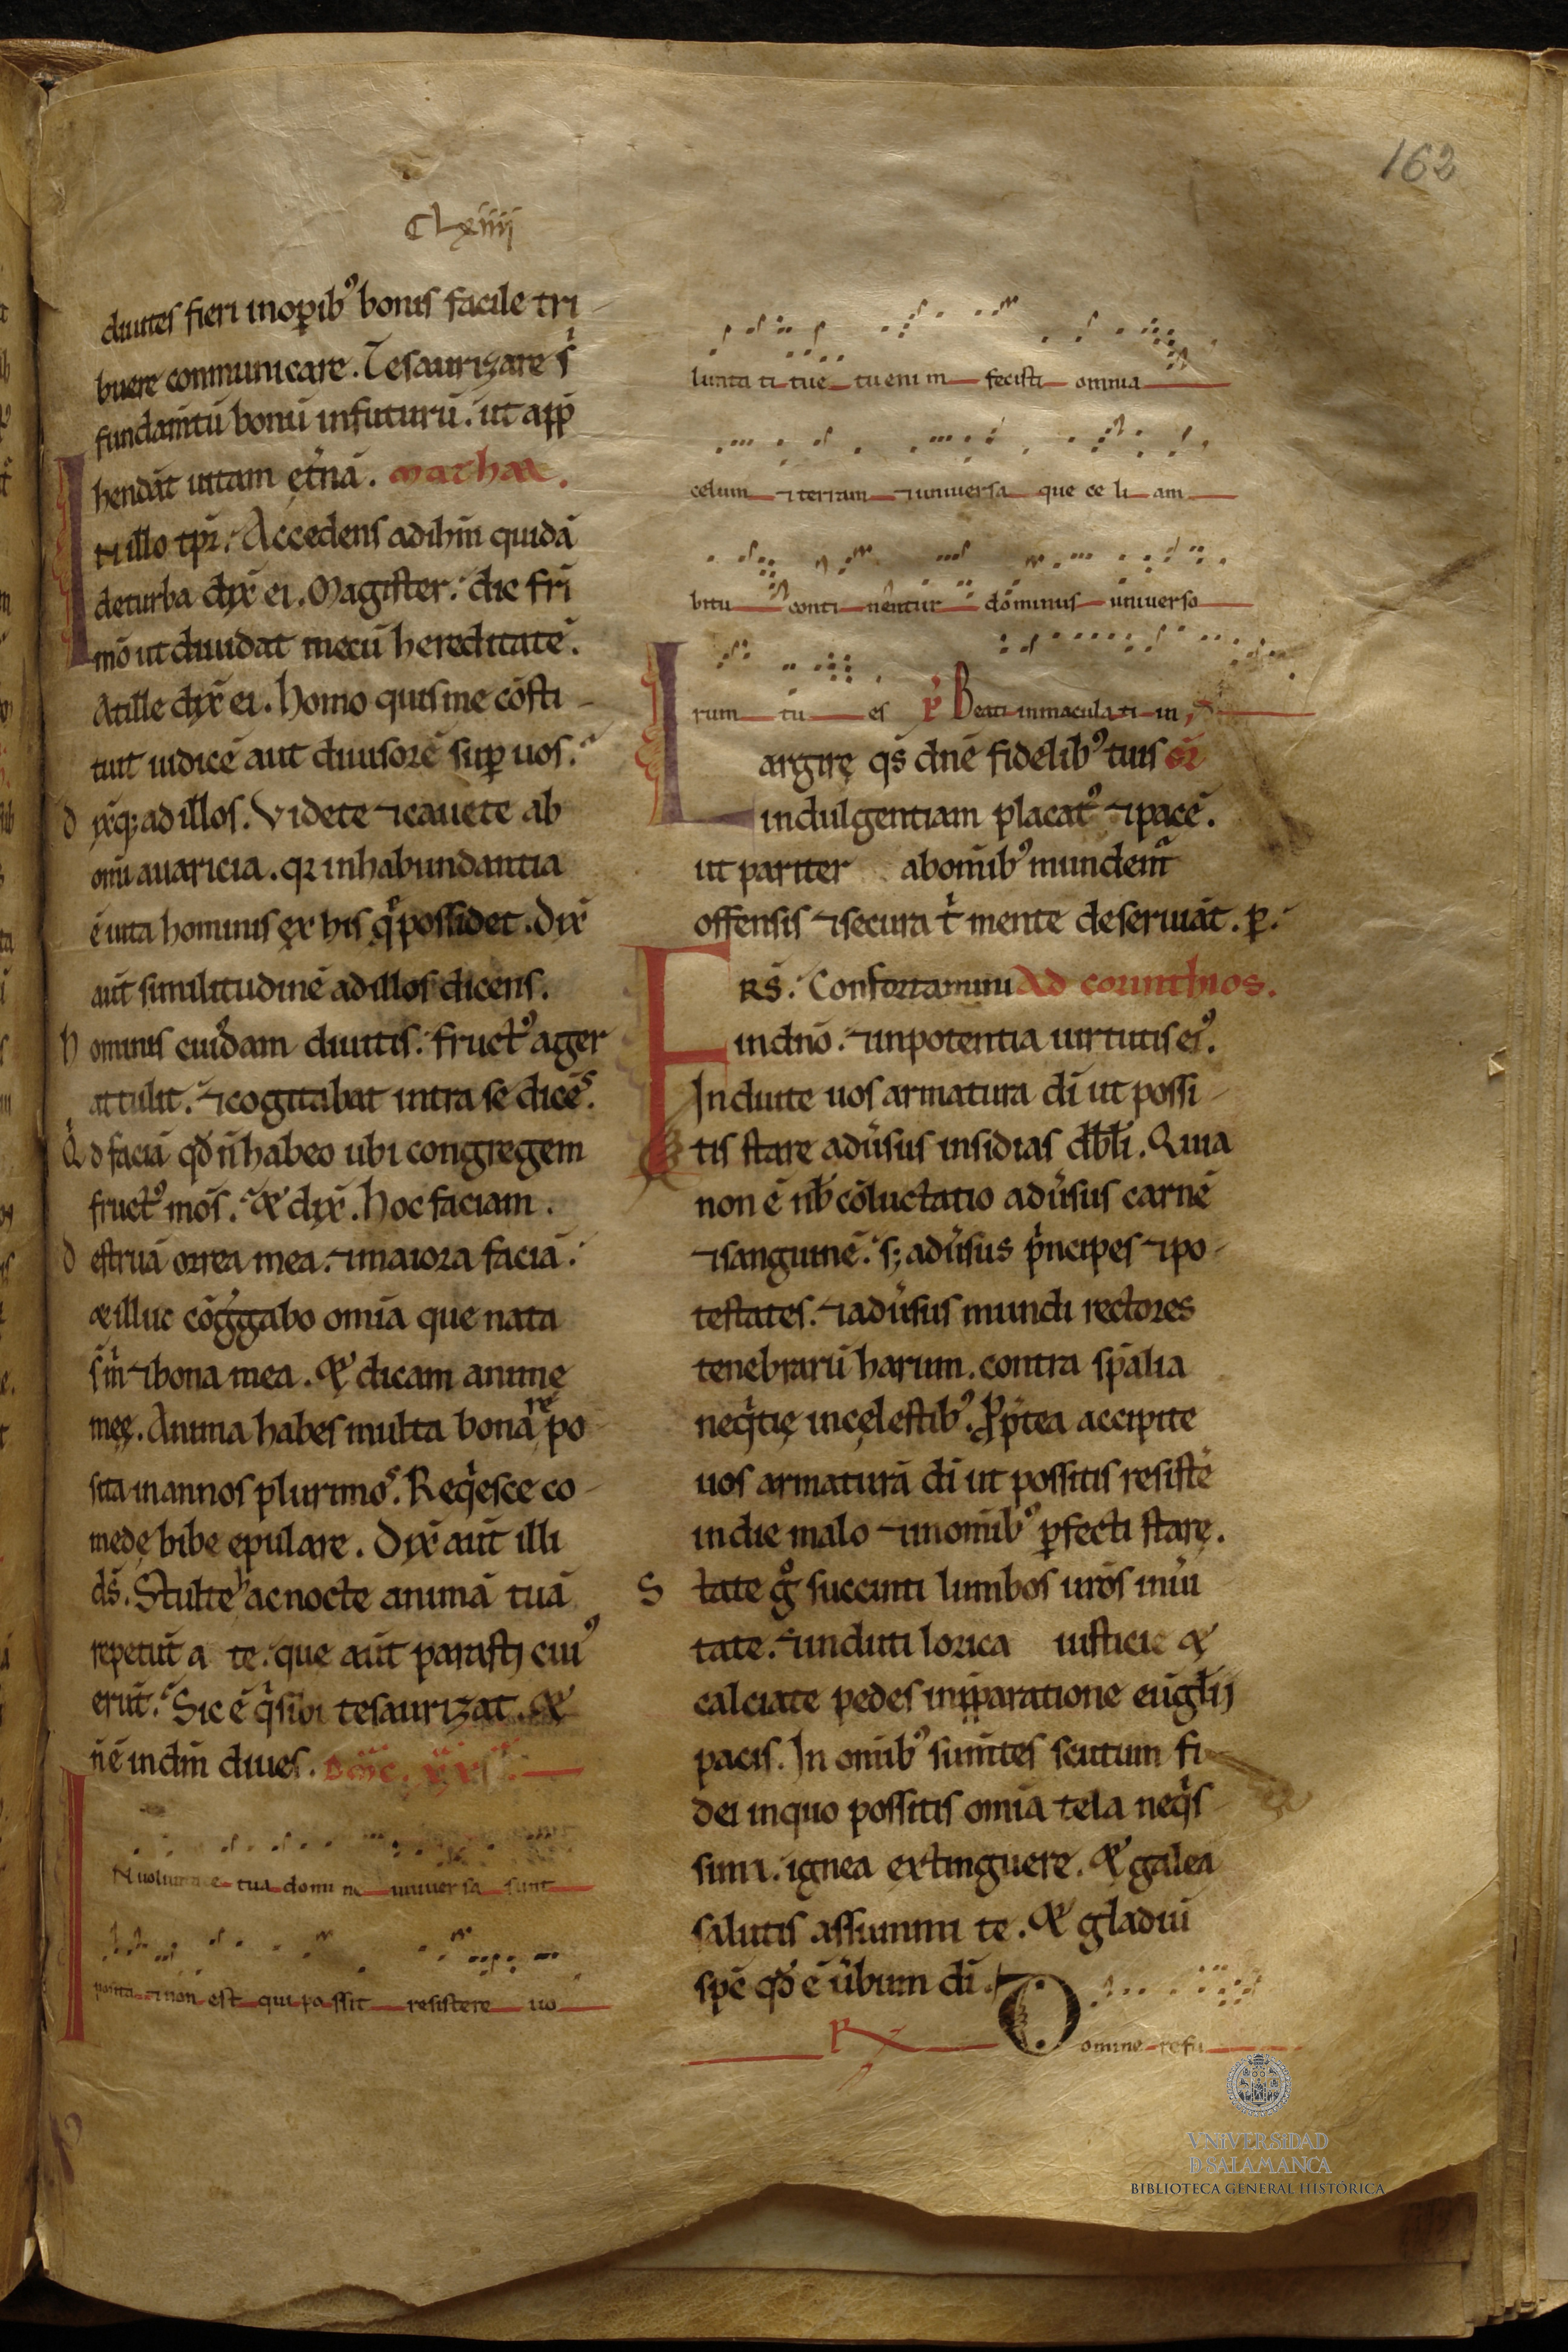 162
CLxiiij
diuites fieri inoꝑib⁹ bonis facile tri
buere communicare. Tesaurizare s̉
fundam̄tū bonū infuturū. ut app̄
hendāt uitam et̄nā. mathee.
N illo tp̄r. Accedens adihm̄ quidā
deturba dix̄ ei. Magister. dic fr̄i
mō ut diuidat mecū hereditatē.
Atille dix̄ ei. Homo quisme cōsti
tuit iudicē aut diuisorē suꝑ uos.
d ix̄q; adillos. Videte ⁊cauete ab
om̄i auaricia. qr inhabundantia
ē uita hominis ex his q̉ possidet. Dix̄
aūt similitudinē adillos dicens.
h ominis cuiᵈam diuitis. fruct⁹ ager
attulit. ⁊cogitabat intra se dicēˢ.
Q̉ d faciā qd̄ n̄ habeo ubi congregem
fruct⁹ mōs. & dix̄. Hoc faciam.
d estruā orrea mea. ⁊maiora faciā.
&illuc cōg̉gabo omīa que nata
s̄m̉ ⁊bona mea. & dicam anime
meę. Anima habes multa bona ʳᵉpo
sita inannos plurimoˢ. Req̉esce co
mede bibe epulare. Dix̄ aūt illi
ds̄. Stulteʰ ac nocte animā tuā
repetūt a te. que aūt parasti cui⁹
erūt. Sic ē q̉ sibi tesaurizat. &
n̄ē indn̄ diues. Dom̄c. xx
N uolun e tua domi ne uniuersa sunt
posita ⁊non est qui possit resistere uo
lunta ti tue tu enim fecisti omnia
celum ⁊terram ⁊uniuersa que ce li am
bitu conti nentur dominus uniuerso
rum tu es P̉ Beati inmaculati in
argirę qs̄ dn̄e fidelib⁹ tuis or̄
indulgentiam placat⁹ ⁊pacē.
ut pariter abomīb⁹ mundem̉
offensis ⁊secura t̉ mente deseruiāt. ꝑ.
RS̄. Confortamini Ad corinthios.
indn̄o. ⁊inpotentia uirtutis ei⁹.
Induite uos armatura dī ut possi
tis stare adūsus insidias dbl̄i. Quia
non ē nb̄ cōluctatio adūsus carnē
⁊sanguinē. s; adūsus p̉ncipes ⁊po
testates. ⁊adūsus mundi rectores
tenebrarū harum. contra sp̄alia
neq̉tię incęlestib⁹. Ꝓpt̄ea accipite
uos armaturā dī ut possitis resistē
indie malo ⁊inomīb⁹ ꝑfecti stare.
S tate g̊ succinti lumbos ur̄os inūi
tate. ⁊induti lorica iusticie &
calciate pedes inp̄paratione eūglij
pacis. In omīb⁹ sum̄tes scutum fi
dei inquo possitis omīa tela neq̉s
sima. ignea extinguere. & galea
salutis assummi te. & gladiū
spē qd̄ ē ūbum dī.
R Domine refu
VNiVERSiDAD
D SALAMANCA
BIBLIOTECA GENERAL HISTÓRICA